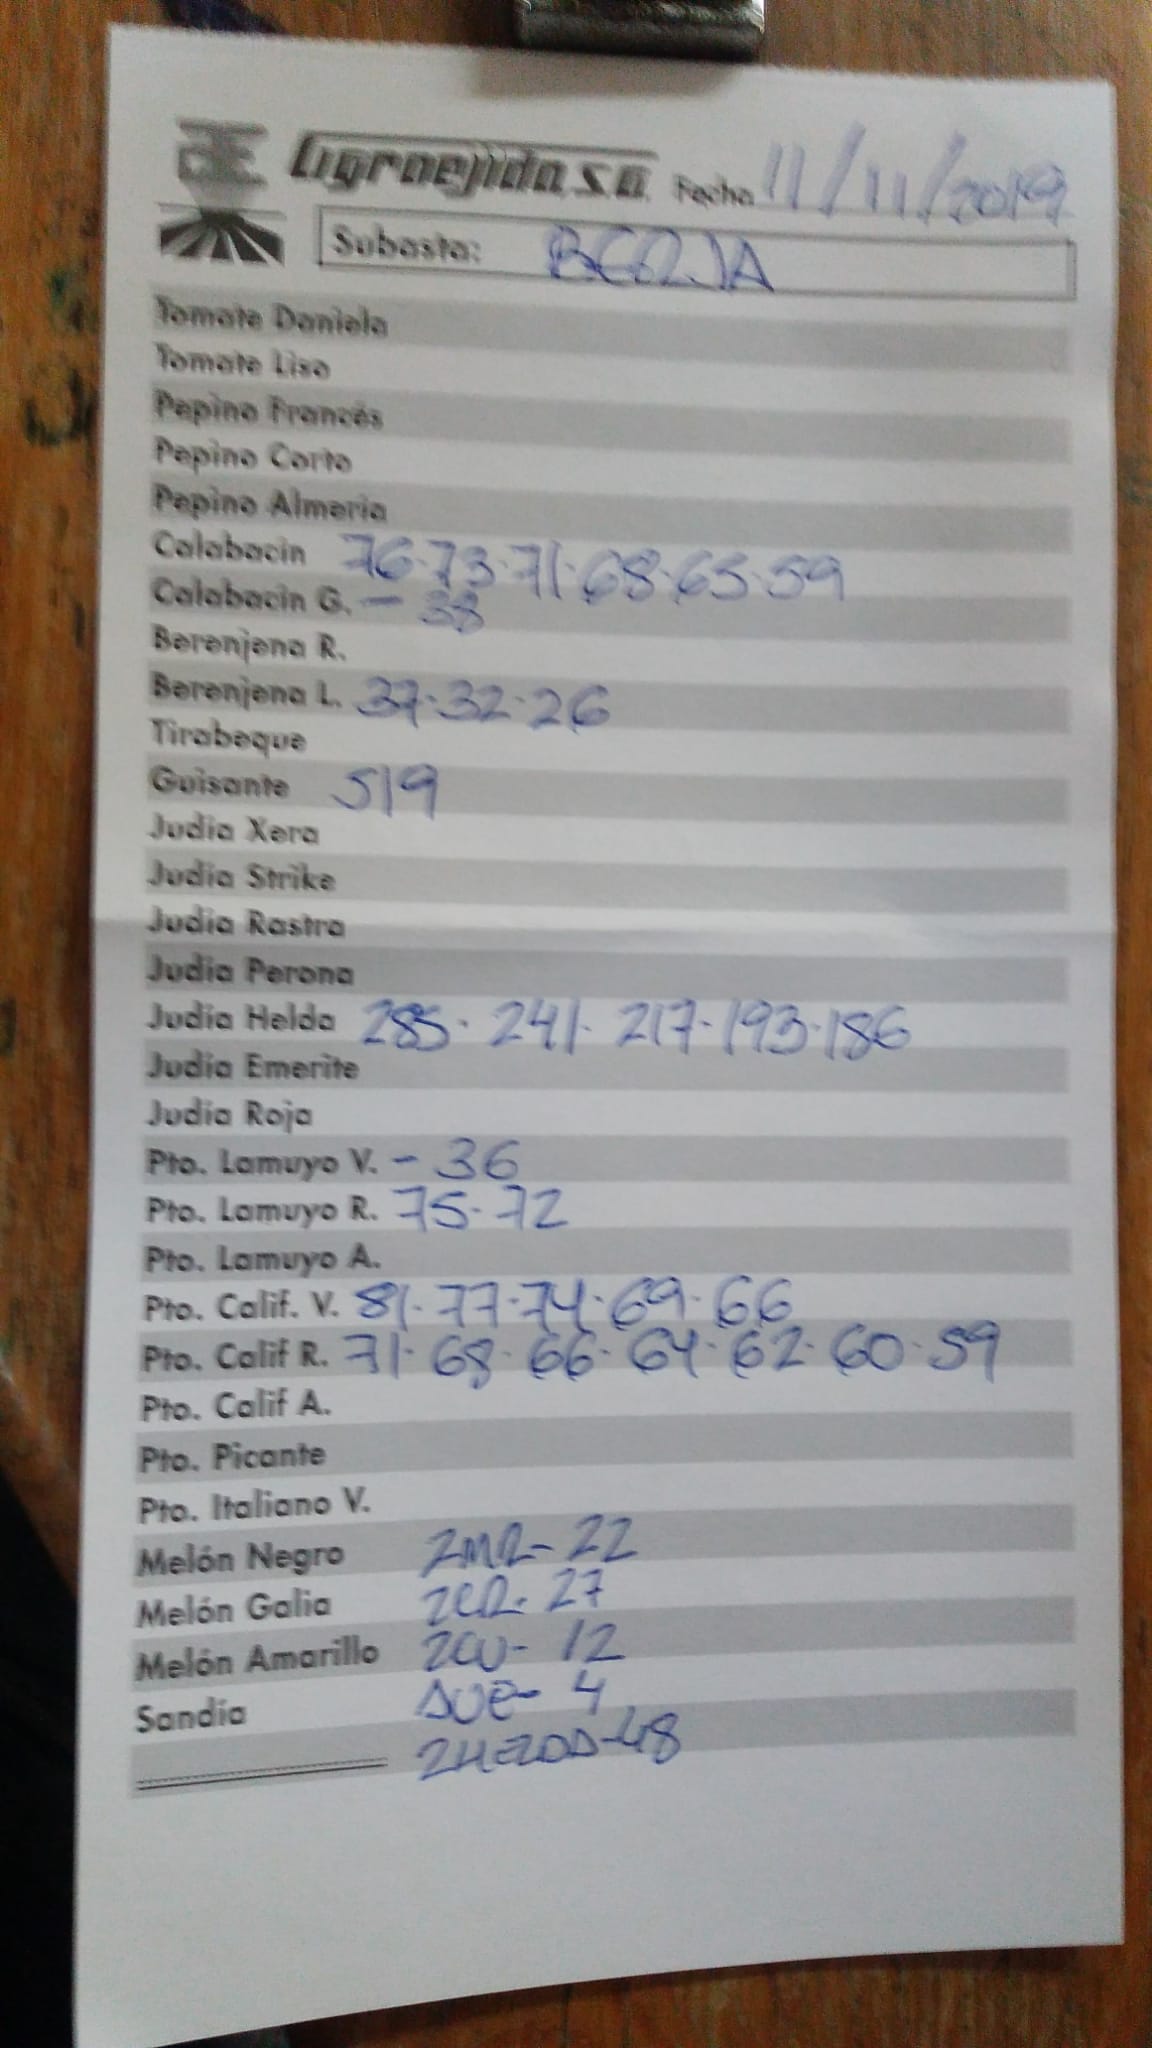 Agroejido, S.A. Fecha 11/11/2019
Subasta: BERJA
Tomate Daniela
Tomate Liso
Pepino Francés
Pepino Corto
Pepino Almeria
Calabacin 76.73.71.68.65.59
Calabacin G. - 38
Berenjena R.
Berenjena L. 37.32.26
Tirabeque
Guisante 519
Judia Xera
Judia Strike
Judia Rastra
Judia Perona
Judia Helda 285. 241. 217. 193. 186
Judia Emerite
Judia Roja
Pto. Lamuyo V. - 36
Pto. Lamuyo R. 75.72
Pto. Lamuyo A.
Pto. Calif. V. 81.77.74.69.66
Pto. Calif R. 71. 68. 66. 64. 62. 60. 59
Pto. Calif A.
Pto. Picante
Pto. Italiano V.
Melón Negro 2MR- 22
Melón Galia 2CR- 27
Melón Amarillo 2CV- 12
Sandía 4
-48